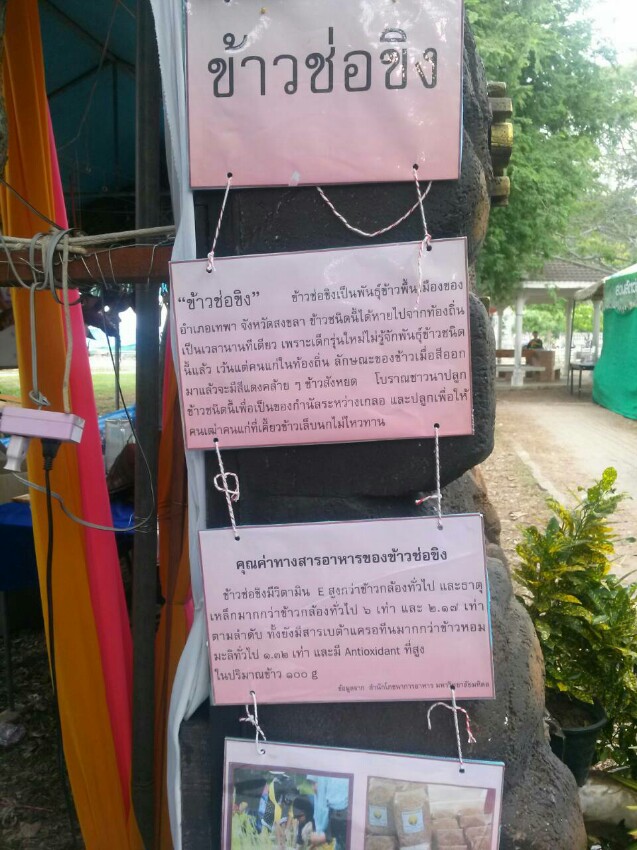 ข้าวช่อขิง
“ข้าวช่อขิง” ข้าวช่อขิงเป็นพันธุ์ข้าวพื้นเมืองของ
อำเภอเทพา จังหวัดสงขลา ข้าวชนิดนี้ได้หายไปจากท้องถิ่น
เป็นเวลานานทีเดียว เพราะเด็กรุ่นใหม่ไม่รู้จักพันธุ์ข้าวชนิด
นี้แล้ว เว้นแต่คนแก่ในท้องถิ่น ลักษณะของข้าวเมื่อสีออก
มาแล้วจะมีสีแดงคล้าย ๆ ข้าวสังหยด โบราณชาวนาปลูก
ข้าวชนิดนี้เพื่อเป็นของกำนัลระหว่างเกลอ และปลูกเพื่อให้
คนเฒ่าคนแก่ที่เคี้ยวข้าวเล็บนกไม่ไหวทาน
คุณค่าทางสารอาหารของข้าวช่อขิง
ข้าวช่อขิงมีวิตามิน E สูงกว่าข้าวกล้องทั่วไป และธาตุ
เหล็กมากกว่าข้าวกล้องทั่วไป ๖ เท่า และ ๒.๑๗ เท่า
ตามลำดับ ทั้งยังมีสารเบต้าแครอทีนมากกว่าข้าวหอม
มะลิทั่วไป ๑.๓๒ เท่า และมี Antioxidant ที่สูง
ในปริมาณข้าว ๑๐๐ g
ข้อมูลจาก สำนักโภชนาการอาหาร มหาวิทยาลัยมหิดล